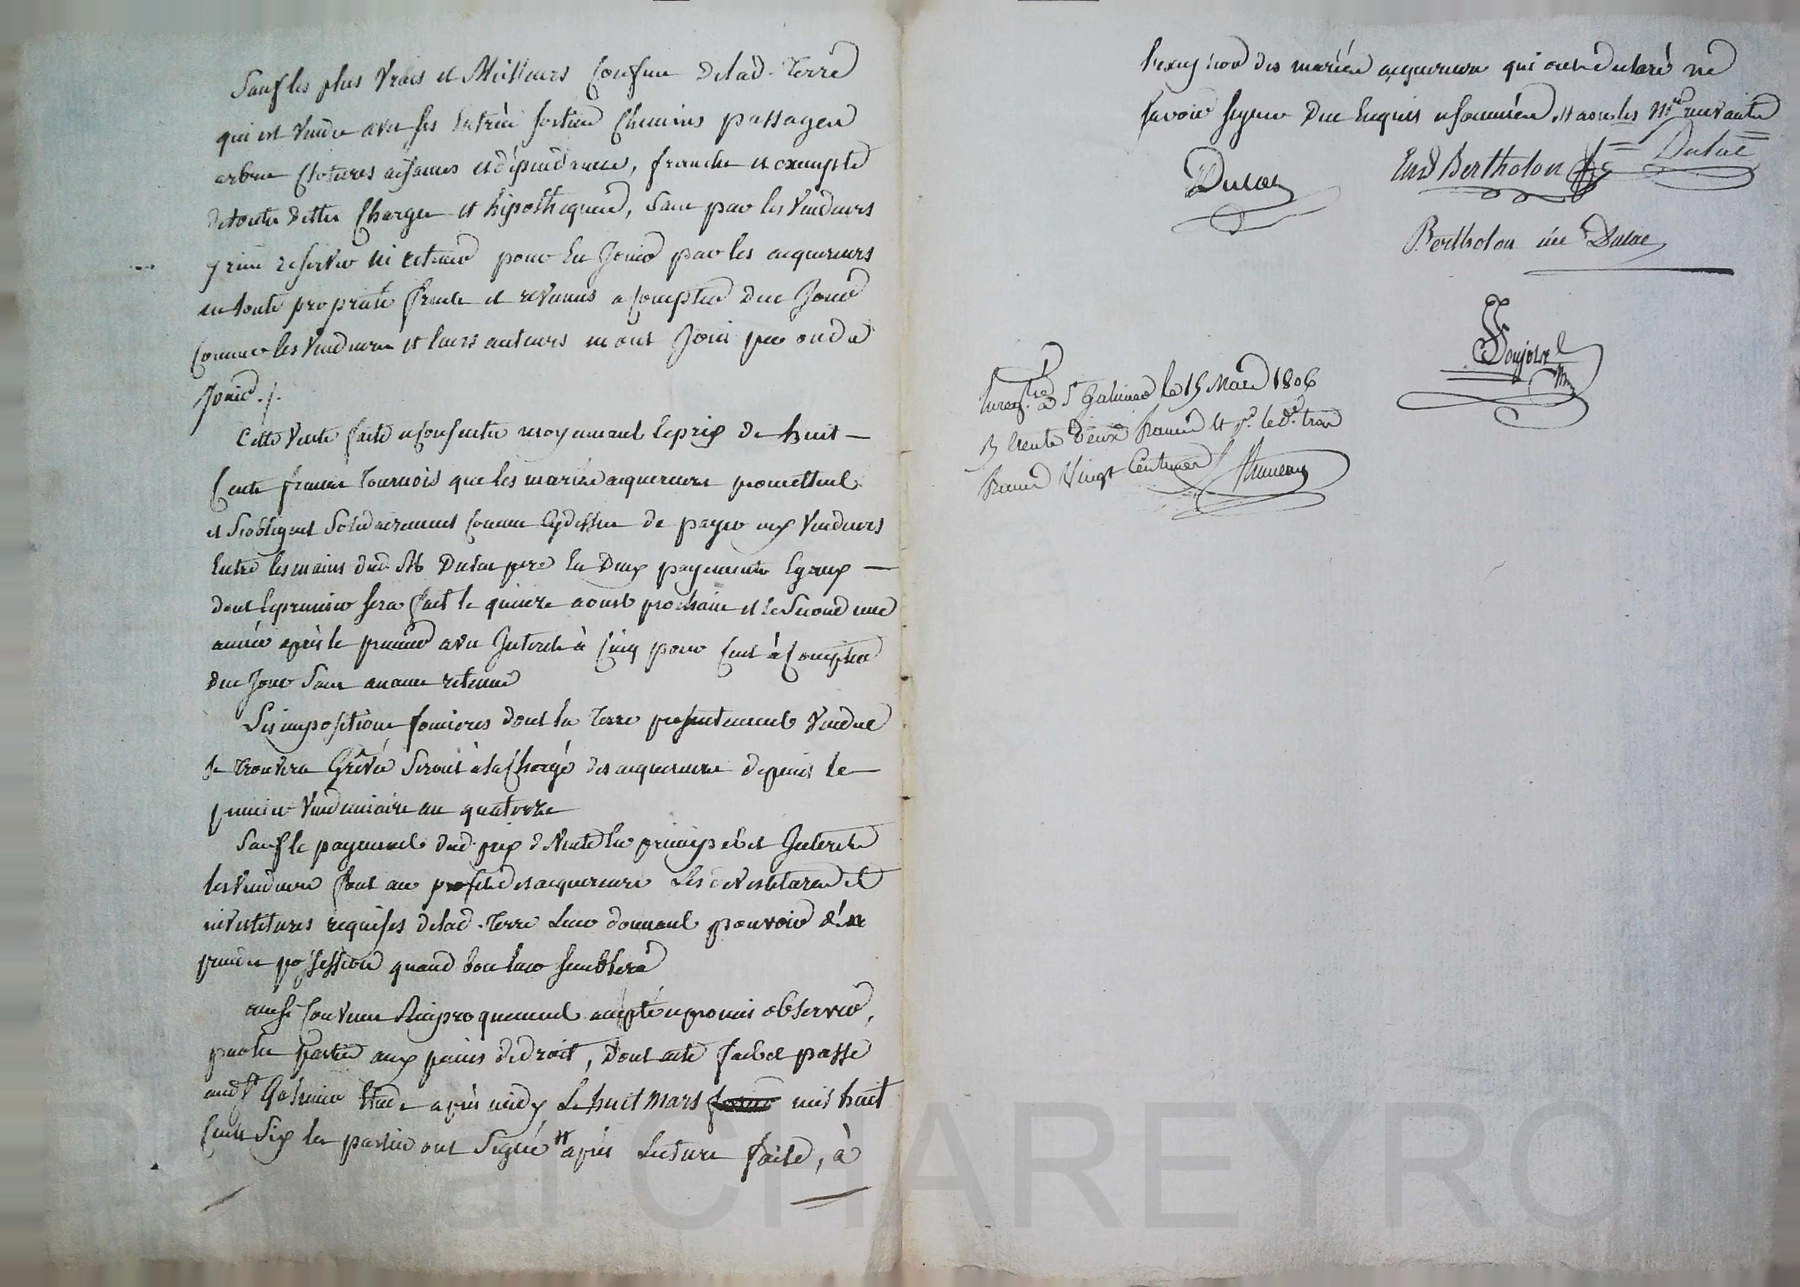 Sauf les plus vrais et Meilleurs Confins delad. Terre
qui est vendue avec ses Entrées sorties Chemins passages
arbres Clotures aisances et dépendances, franche et exempte
de toutes dettes Charges et hipotheques, sans par les Vendeurs
y rien reserver ni retenir pour En Jouir par les acquereurs
en toute propriété fruits et revenus a Compter de ce Jour
Comme les Vendeurs et leurs auteurs en ont Joui pu ou du
Jouir ./.
Cette Vente faite et Consentie moyennant le prix de huit —
Cents francs Tournois que les mariés acquereurs promettent
et s'obligent Solidairement Comme Cydessus de payer aux Vendeurs
Entre les mains dud. Sr Dulac pere En Deux payements Egaux —
dont le premier sera fait le quinze aoust prochain et le Second une
année après le premier avec Interets à Cinq pour Cent à Compter
de ce Jour Sans aucune retenue
Les impositions foncieres dont la Terre presentement Vendue
se trouvera Grévée Seront à la Charge des acquereurs depuis le —
premier Vendemiaire an quatorze
Sauf le payement dud. prix de Vente En principal et Interets
les Vendeurs font au profit des acquereurs Les devestitures et
investitures requises delad. Terre Leur donnant pouvoir d'en
prendre possession quand bon leur semblera
ainsi Convenu Reciproquement accepté et promis observer,
par les parties aux peines de droit, Dont acte fait et passé
aud. St Galmier Etude après midy Le huit Mars mil huit
Cent Six les parties ont Signé après Lecture faite, à
l'exception des mariés acquereurs qui ont declaré ne
savoir signer De ce Enquis et sommés et avec les Nres recevants
Dulac
End Bertholon
Dulac
Bertholon née Dulac
Enregtré à St Galmier le 15 Mars 1806
R trente deux francs et pr. le d.e trois
francs Vingt Centimes